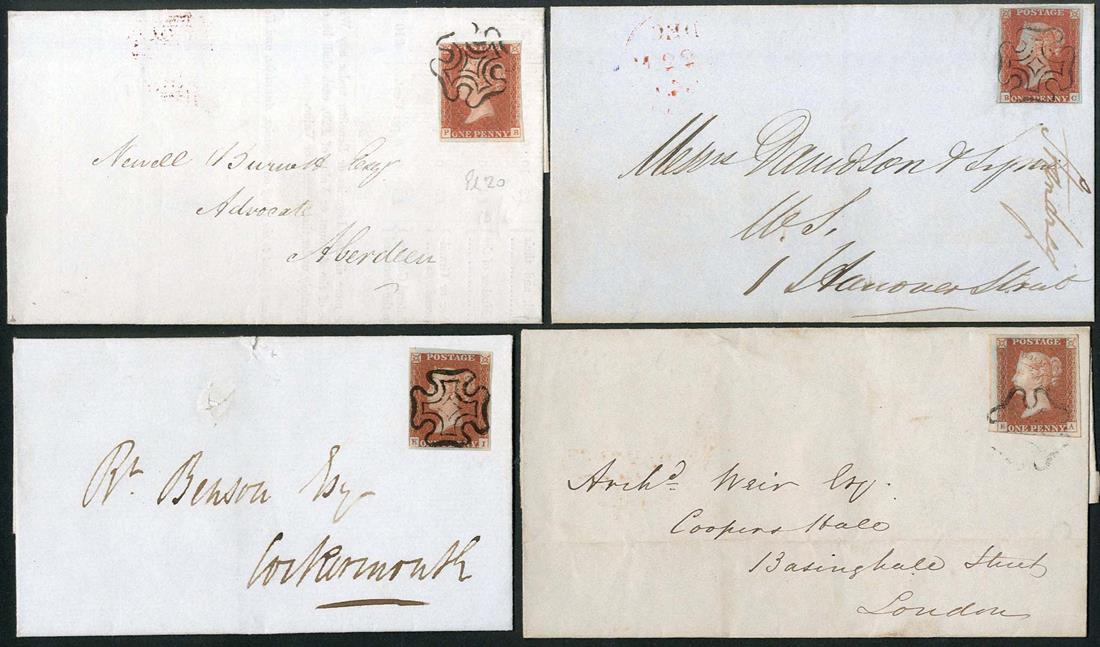 P B
ONE PENNY
Newell Burnett Esqr
Advocate
Aberdeen
POSTAGE
B C
ONE PENNY
Messrs Davidson & Syme
W. S.
1 Hanover Street
POSTAGE
E I
Rt. Benson Esqr
Cockermouth
POSTAGE
A
ONE PENNY
Archd. Weir Esq.
Coopers Hall
Basinghall Street
London